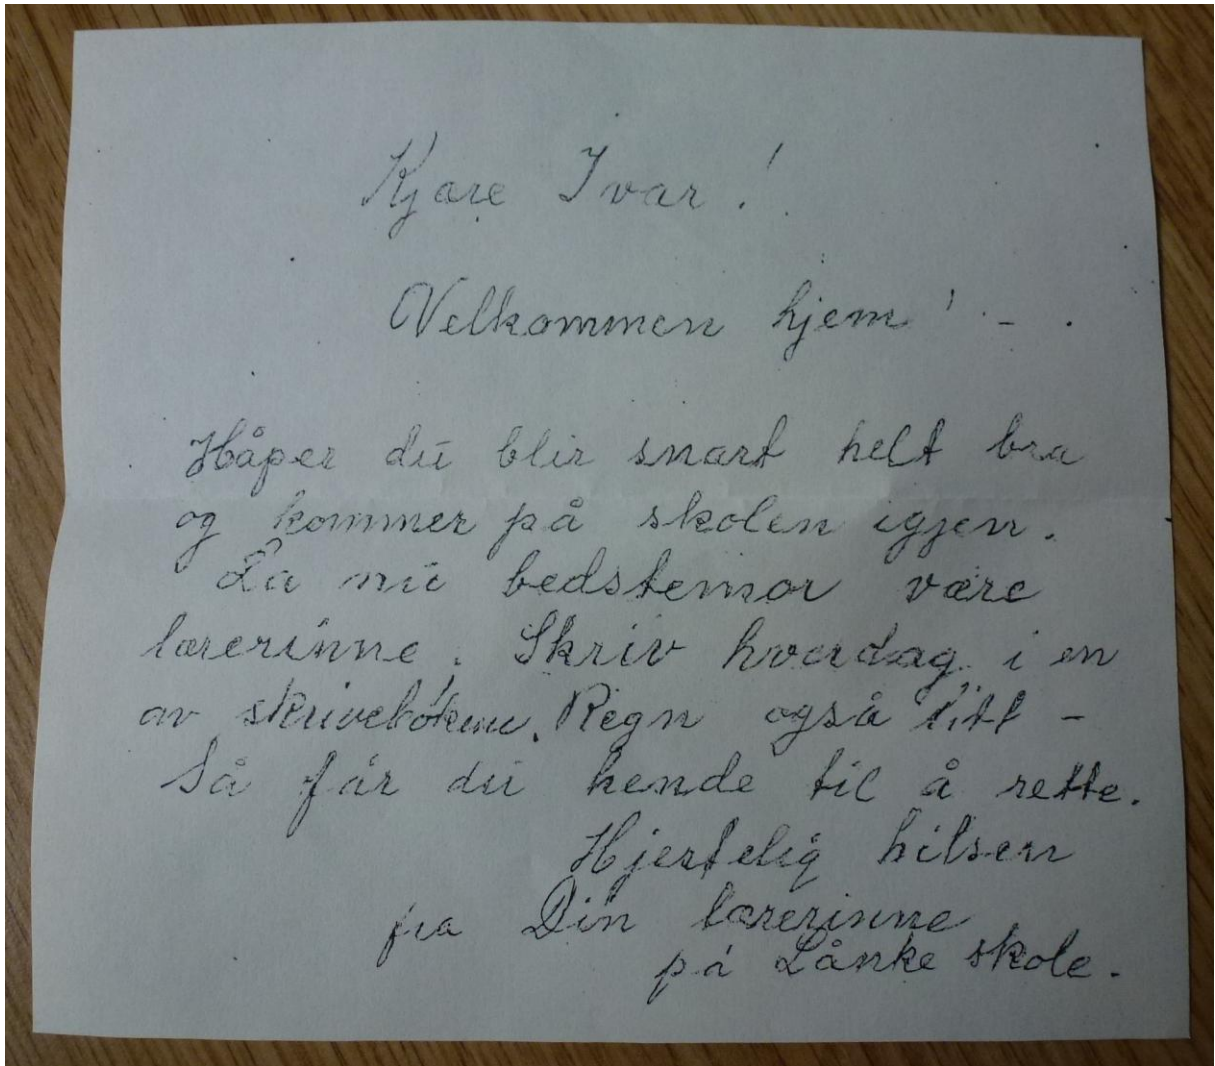 Kjære Ivar!
Velkommen hjem! -
Håper du blir snart helt bra
og kommer på skolen igjen.
La nu bedstemor være
lærerinne. Skriv hverdag i en
av skrivebøkene. Regn også litt -
Så får du hende til å rette.
Hjertelig hilsen
fra Din lærerinne
på Lånke skole.